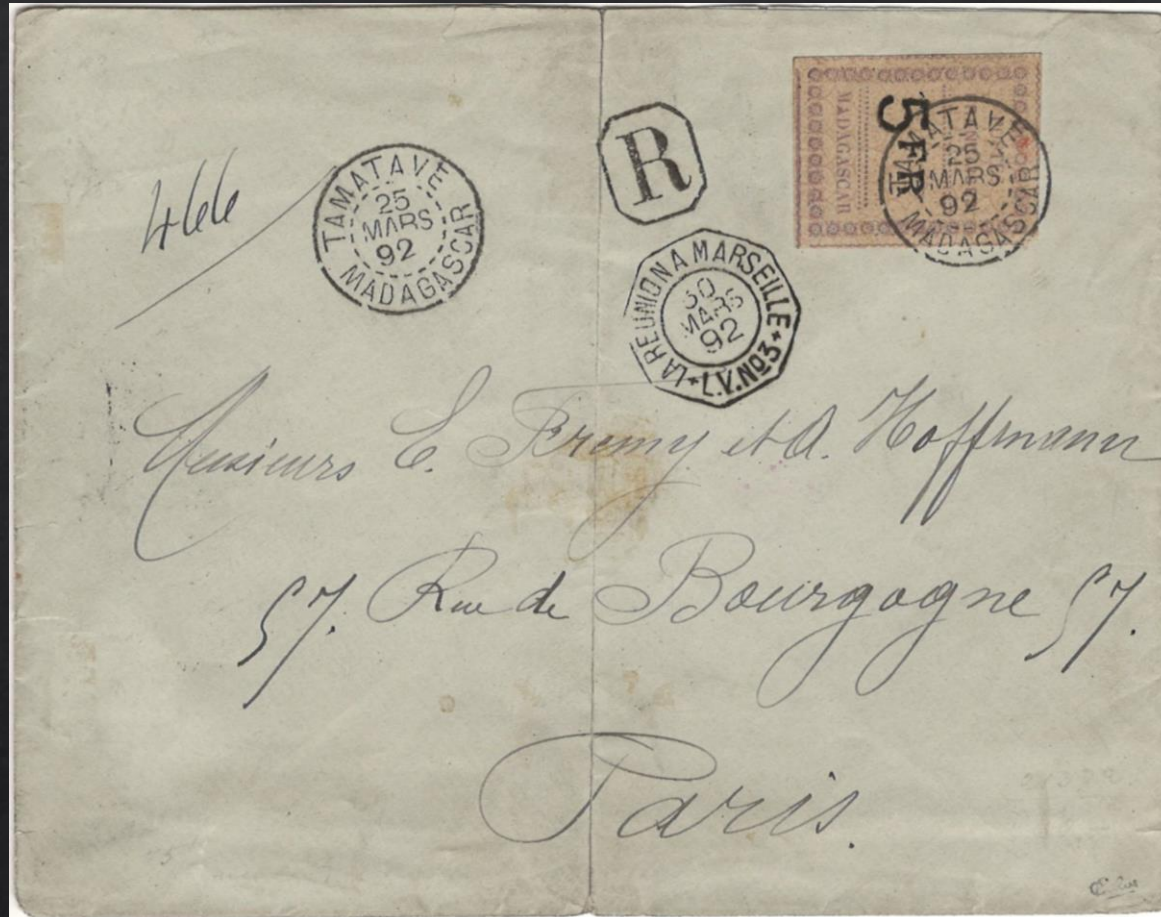 466
TAMATAVE
25
MARS
92
MADAGASCAR
R
MADAGASCAR
5 FR
TAMATAVE
25
MARS
92
MADAGASCAR
LA REUNION A MARSEILLE
30
MARS
92
L.V. No 3
Messieurs E. Fremy et A. Hoffmann
57. Rue de Bourgogne 57.
Paris.